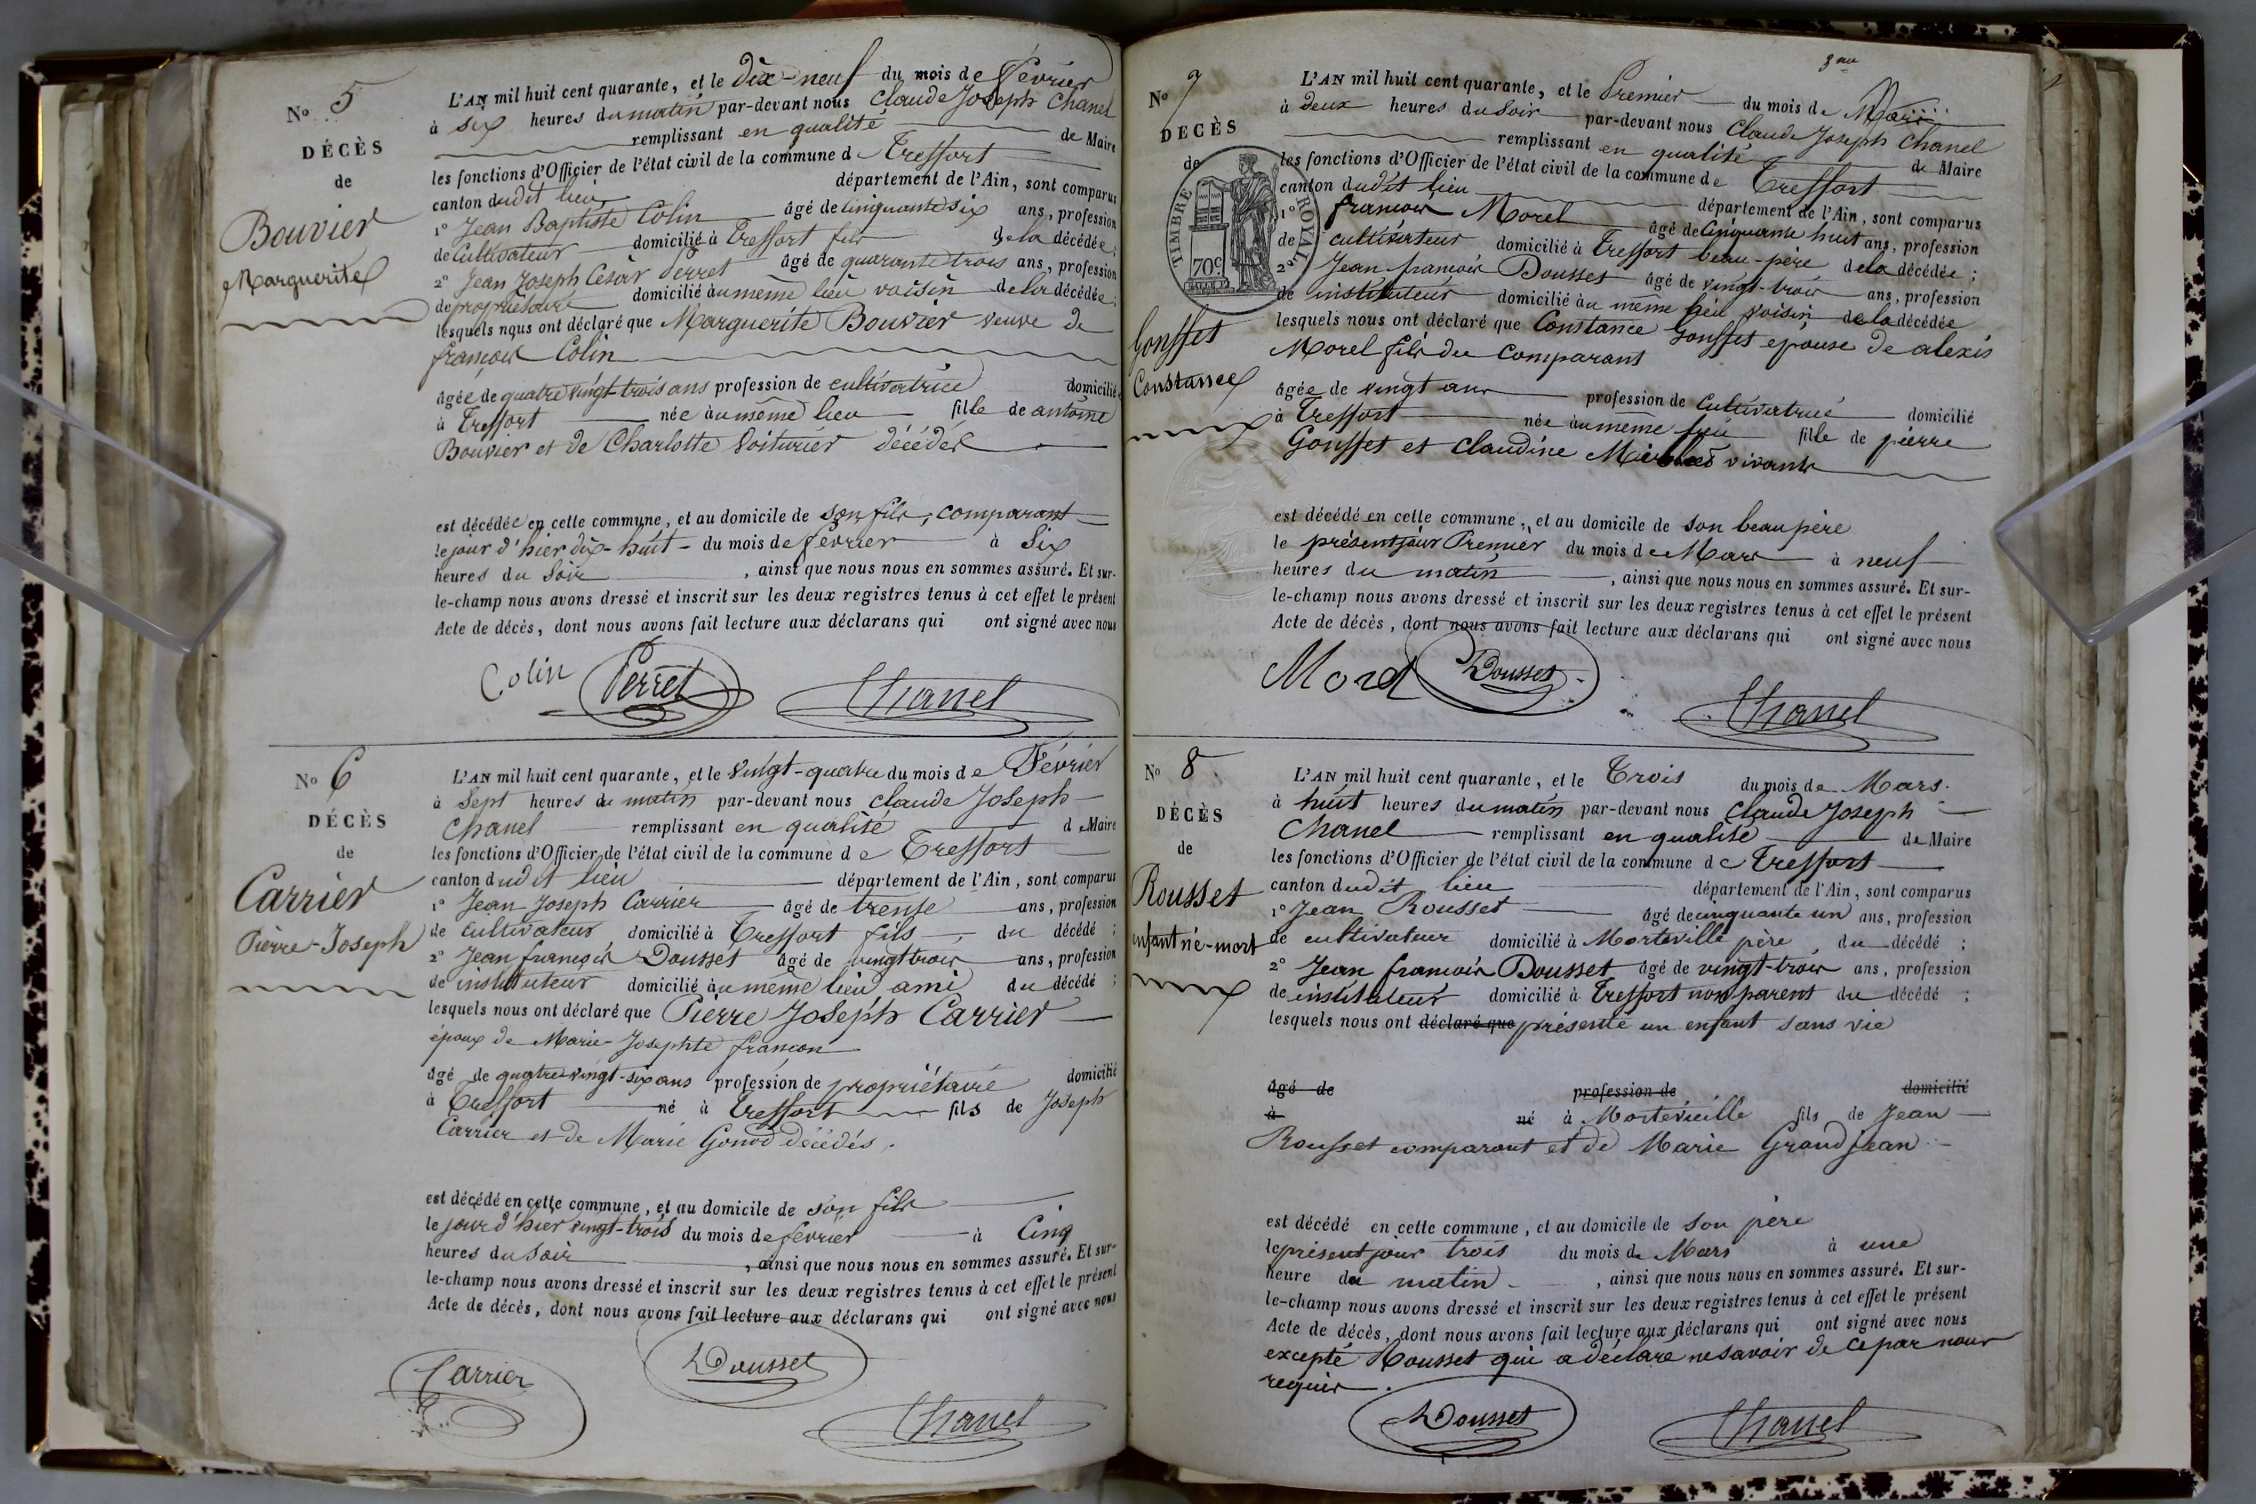 No 5
DÉCÈS
de
Bouvier
Marguerite
L'AN mil huit cent quarante, et le dix-neuf du mois de février
à six heures du matin par-devant nous Claude Joseph Chanel
remplissant en qualité de Maire
les fonctions d'Officier de l'état civil de la commune de Treffort
canton dudit lieu département de l'Ain, sont comparus
1° Jean Baptiste Colin âgé de cinquante six ans, profession
de Cultivateur domicilié à Treffort fils de la décédée;
2° Jean Joseph César Perret âgé de quarante trois ans, profession
de propriétaire domicilié au même lieu voisin de la décédée;
lesquels nous ont déclaré que Marguerite Bouvier veuve de
françois Colin
âgée de quatre vingt-trois ans profession de cultivatrice domicilié
à Treffort née au même lieu fille de antoine
Bouvier et de Charlotte Voiturier décédés
est décédée en cette commune, et au domicile de son fils, comparant
le jour d'hier dix-huit du mois de février à Six
heures du Soir, ainsi que nous nous en sommes assuré. Et sur-
le-champ nous avons dressé et inscrit sur les deux registres tenus à cet effet le présent
Acte de décès, dont nous avons fait lecture aux déclarans qui ont signé avec nous
Colin Perret Chanel
No 6
DÉCÈS
de
Carrier
Pierre-Joseph
L'AN mil huit cent quarante, et le vingt-quatre du mois de Février
à Sept heures du matin par-devant nous Claude Joseph
Chanel remplissant en qualité de Maire
les fonctions d'Officier de l'état civil de la commune de Treffort
canton dudit lieu département de l'Ain, sont comparus
1° Jean Joseph Carrier âgé de trente ans, profession
de Cultivateur domicilié à Treffort fils du décédé;
2° Jean françois Dousset âgé de vingt trois ans, profession
de instituteur domicilié au même lieu ami du décédé;
lesquels nous ont déclaré que Pierre Joseph Carrier
époux de Marie-Josephte françon
âgé de quatre vingt-six ans profession de propriétaire domicilié
à Treffort né à Treffort fils de Joseph
Carrier et de Marie Gonod décédés.
est décédé en cette commune, et au domicile de son fils
le jour d'hier vingt-trois du mois de février à Cinq
heures du Soir, ainsi que nous nous en sommes assuré. Et sur-
le-champ nous avons dressé et inscrit sur les deux registres tenus à cet effet le présent
Acte de décès, dont nous avons fait lecture aux déclarans qui ont signé avec nous
Carrier Dousset Chanel
No 7
DECÈS
de
TIMBRE ROYAL
70c
Gousset
Constance
L'AN mil huit cent quarante, et le Premier du mois de Mars
à deux heures du Soir par-devant nous Claude Joseph Chanel
remplissant en qualité de Maire
les fonctions d'Officier de l'état civil de la commune de Treffort
canton dudit lieu département de l'Ain, sont comparus
1° françois Morel âgé de Cinquante huit ans, profession
de cultivateur domicilié à Treffort beau-père de la décédée;
2° Jean françois Dousset âgé de vingt-trois ans, profession
de instituteur domicilié au même lieu voisin de la décédée
lesquels nous ont déclaré que Constance Gousset épouse de alexis
Morel fils du comparant
âgée de vingt ans profession de Cultivatrice domicilié
à Treffort née au même lieu fille de pierre
Gousset et claudine vivants
est décédé en cette commune, et au domicile de son beau père
le présent jour Premier du mois de Mars à neuf
heures du matin, ainsi que nous nous en sommes assuré. Et sur-
le-champ nous avons dressé et inscrit sur les deux registres tenus à cet effet le présent
Acte de décès, dont nous avons fait lecture aux déclarans qui ont signé avec nous
Morel Dousset Chanel
No 8
DÉCÈS
de
Rousset
enfant né-mort
L'AN mil huit cent quarante, et le Trois du mois de Mars.
à huit heures du matin par-devant nous Claude Joseph
Chanel remplissant en qualité de Maire
les fonctions d'Officier de l'état civil de la commune de Treffort
canton dudit lieu département de l'Ain, sont comparus
1° Jean Rousset âgé de cinquante un ans, profession
de cultivateur domicilié à Morteville père du décédé;
2° Jean françois Dousset âgé de vingt-trois ans, profession
de instituteur domicilié à Treffort non parent du décédé;
lesquels nous ont déclaré que présenté un enfant sans vie
âgé de profession de domicilié
à né à Mortevieille fils de Jean
Rousset comparant et de Marie Grandjean
est décédé en cette commune, et au domicile de son père
le présent jour trois du mois de Mars à une
heure du matin, ainsi que nous nous en sommes assuré. Et sur-
le-champ nous avons dressé et inscrit sur les deux registres tenus à cet effet le présent
Acte de décès, dont nous avons fait lecture aux déclarans qui ont signé avec nous
excepté Rousset qui a déclaré ne savoir de ce par nous
requis.
Dousset Chanel